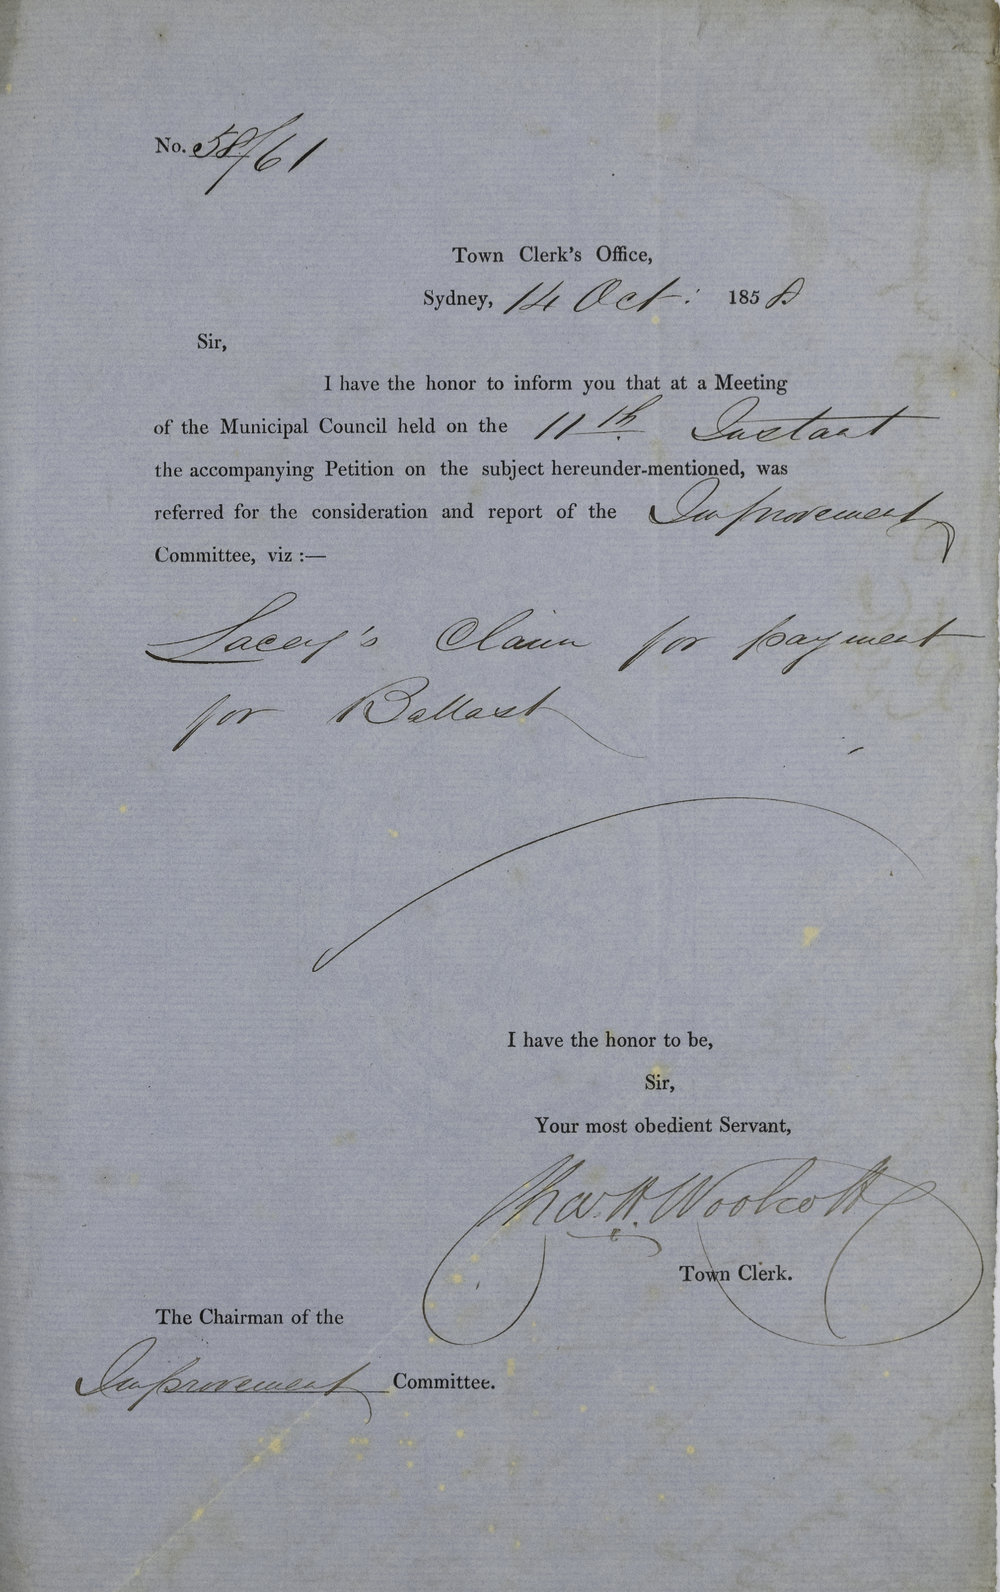 No. 58/61
Town Clerk's Office,
Sydney, 14 Oct: 1858
Sir,
I have the honor to inform you that at a Meeting
of the Municipal Council held on the 11th. Instant
the accompanying Petition on the subject hereunder-mentioned, was
referred for the consideration and report of the Improvement
Committee, viz :—
Lacey's Claim for payment
for Ballast
I have the honor to be,
Sir,
Your most obedient Servant,
Chas. H. Woolcott
Town Clerk.
The Chairman of the
Improvement Committee.